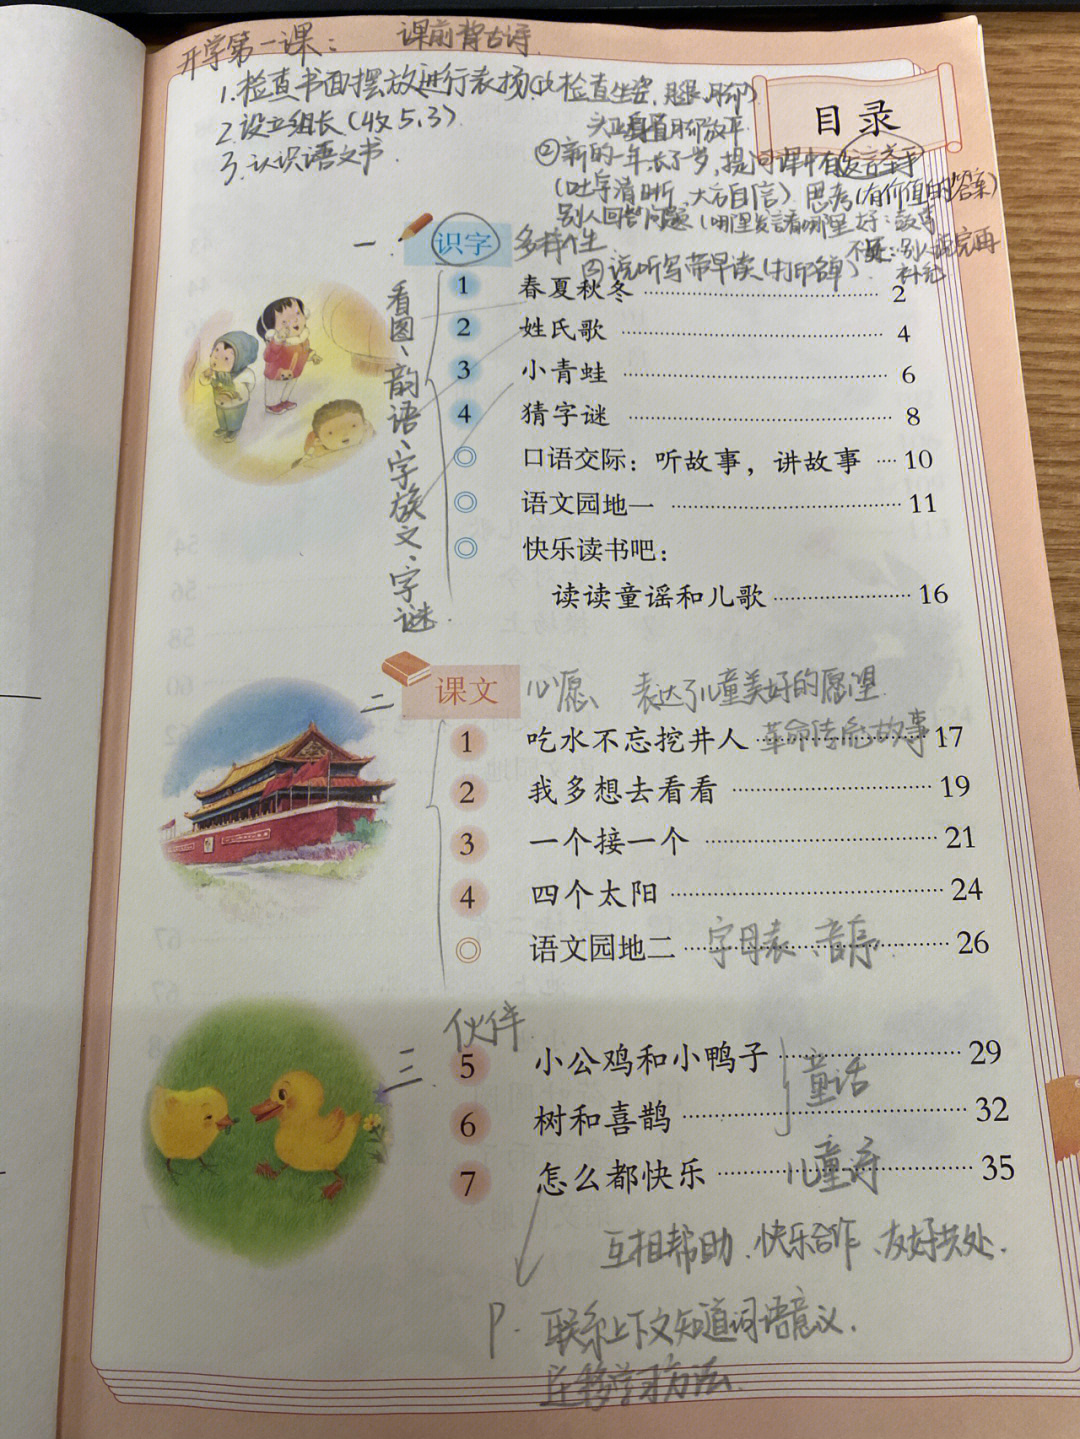 开学第一课： 课前背古诗
1.检查书面摆放进行表扬（①检查坐姿，腿，脚）
头正肩直脚放平
2.设立组长（收5.3）
3.认识语文书
②新的一年，长了一岁，提问课中有发言举手
（吐字清晰，大方自信） 思考（有价值的答案）
别人回答问题（哪里发言看哪里 好：鼓掌
不足：别人说完再
补充
③说听写带早读（打印名单）
目录
一 识字 多样性
看图、韵语、字族文、字谜
1 春夏秋冬 2
2 姓氏歌 4
3 小青蛙 6
4 猜字谜 8
◎ 口语交际：听故事，讲故事 10
◎ 语文园地一 11
◎ 快乐读书吧：
读读童谣和儿歌 16
二 课文 心愿、 表达了儿童美好的愿望
1 吃水不忘挖井人 革命传统故事 17
2 我多想去看看 19
3 一个接一个 21
4 四个太阳 24
◎ 语文园地二 字母表、音序 26
三 伙伴
5 小公鸡和小鸭子 29
童话
6 树和喜鹊 32
7 怎么都快乐 儿童诗 35
互相帮助、快乐合作、友好共处.
P. 联系上下文知道词语意义.
迁移学习方法.